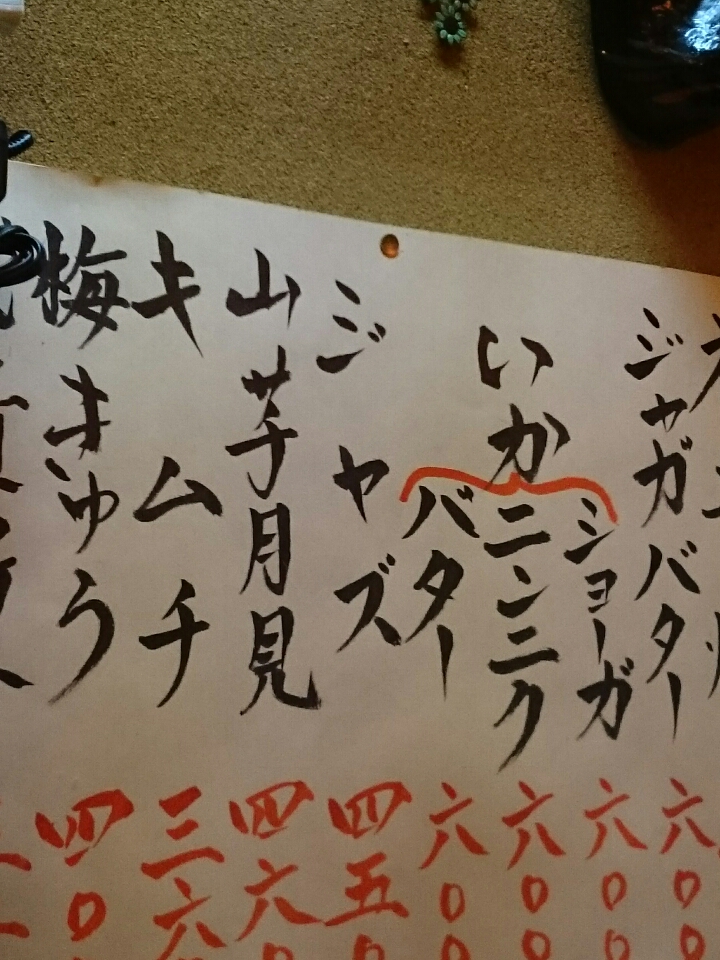 ジャガバター 六〇〇
いか
ショーガ 六〇〇
ニンニク 六〇〇
バター 六〇〇
ジャズ 四五〇
山芋月見 四六〇
キムチ 三六
梅きゅう 四〇